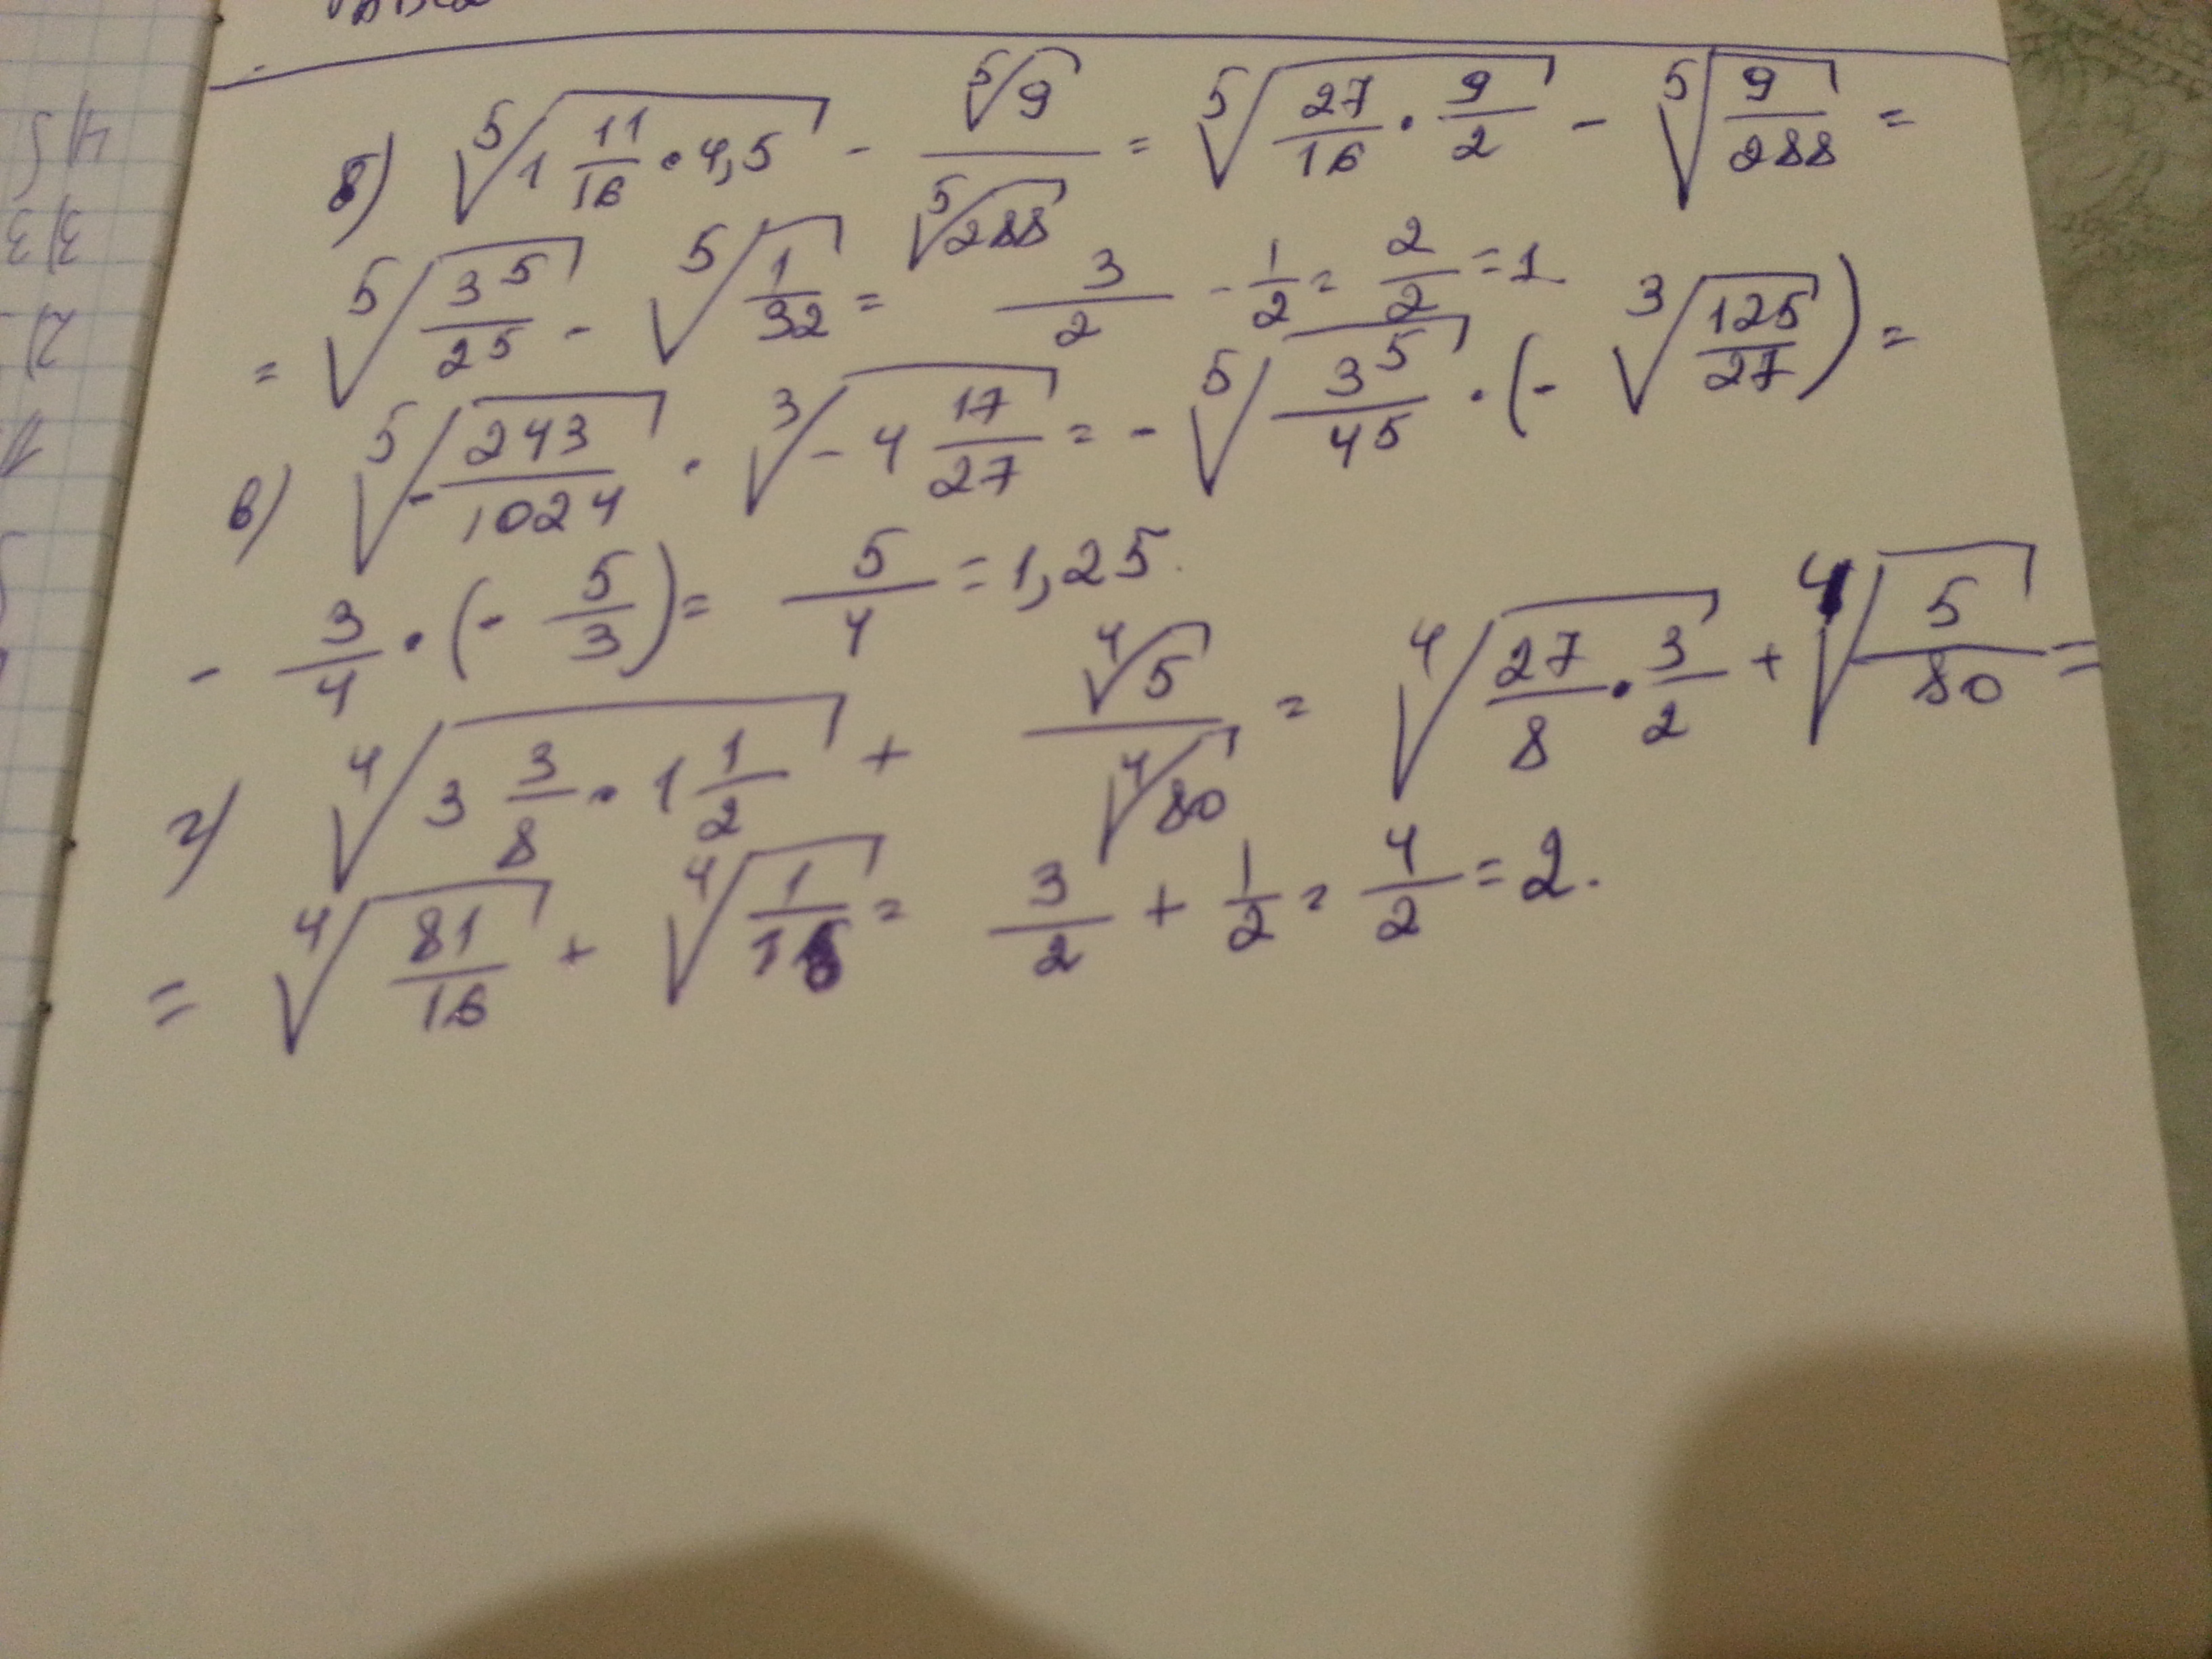 б) ⁵√(1 11/16 · 4,5) - ⁵√9 / ⁵√288 = ⁵√(27/16 · 9/2) - ⁵√(9/288) =
= ⁵√(3⁵/2⁵) - ⁵√(1/32) = 3/2 - 1/2 = 2/2 = 1
в) ⁵√(-243/1024) · ³√(-4 17/27) = - ⁵√(3⁵/4⁵) · (- ³√(125/27)) =
- 3/4 · (- 5/3) = 5/4 = 1,25.
г) ⁴√(3 3/8 · 1 1/2) + ⁴√5 / ⁴√80 = ⁴√(27/8 · 3/2) + ⁴√(5/80) =
= ⁴√(81/16) + ⁴√(1/16) = 3/2 + 1/2 = 4/2 = 2.